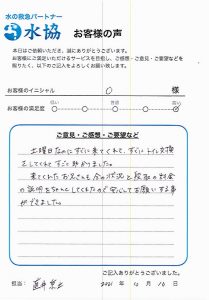 水の救急パートナー
水協 お客様の声
本日はご依頼いただき、誠にありがとうございます。
お客様にご満足いただけるサービスを目指し、ご感想・ご意見・ご要望などを
賜りたく、以下のご記入をよろしくお願い致します。
お客様のイニシャル O 様
お客様の満足度 低い 普通 高い
ご意見・ご感想・ご要望など
土曜日なのにすぐに来てくれて、すぐにトイレ交換
をしてくれてすごく助かりました。
来てくれたお兄さんも今の状況と段取や料金
の説明をちゃんとしてくれたので安心してお願いする事
ができました。
ご記入ありがとうございました。
担当: 2021 年 10 月 16 日